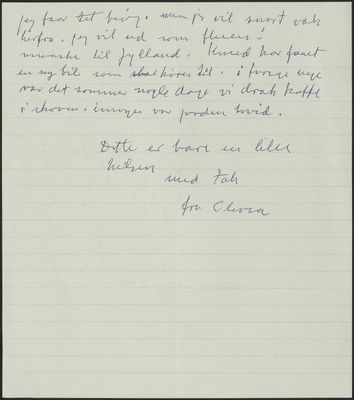 jeg faar det besøg. men jeg vil snart vak
herfra. jeg vil ud som fluen!
maaske til Jylland. Knud har faaet
en ny bil som skal køres til. i forrige uge
var det sommer nogle dage vi drak kaffe
i skoven. imorges var jorden hvid.
Dette er bare en lille
hilsen
med Tak
fra Olivia